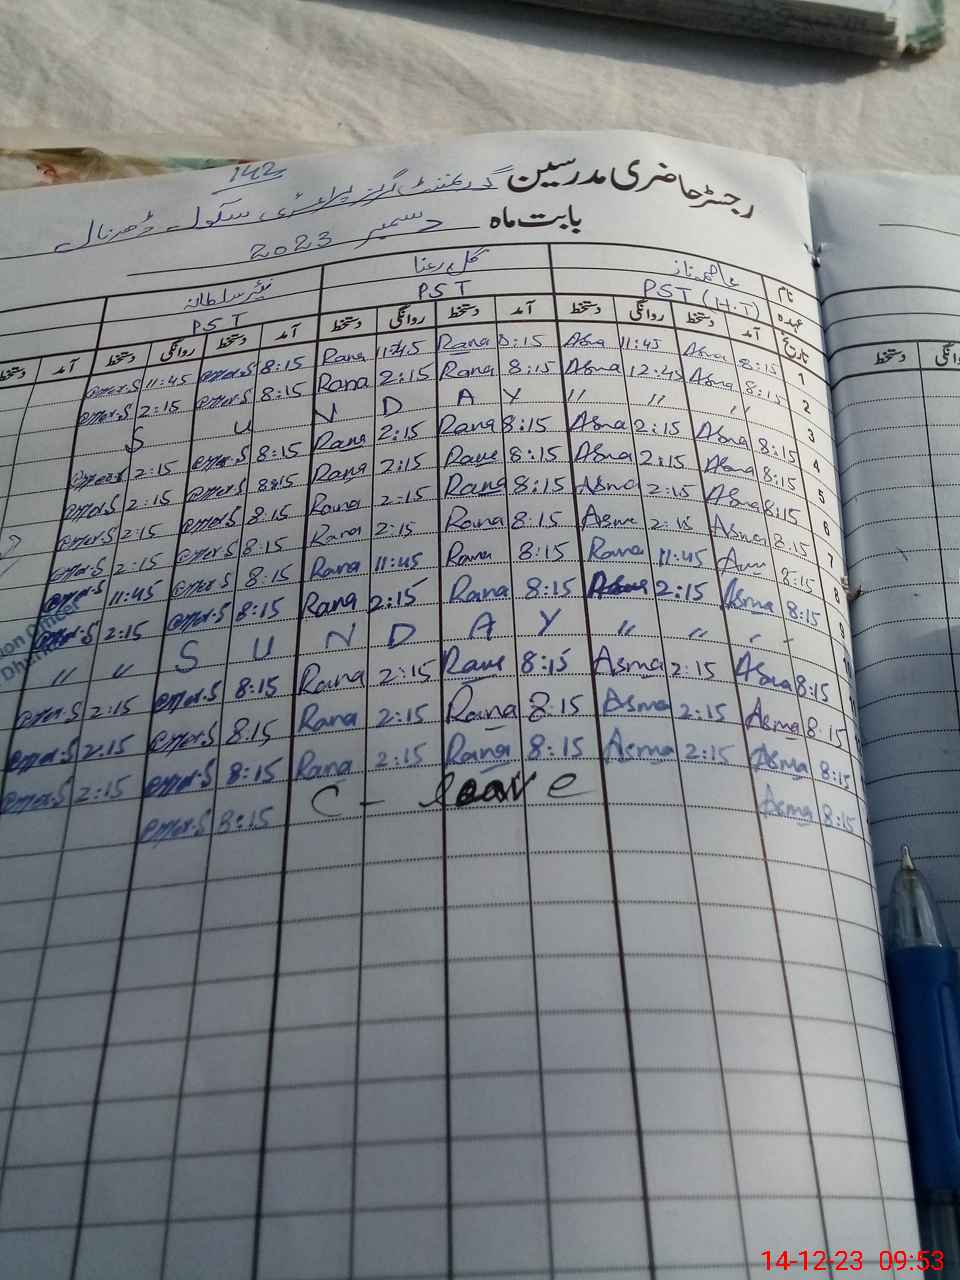 142
رجسٹر حاضری مدرسین گورنمنٹ گرلز پرائمری سکول ڈھرنال
بابت ماہ دسمبر 2023
نام عاصمہ ناز گل رعنا
عہدہ PST (H.T) PST PST
تاریخ آمد دستخط روانگی دستخط آمد دستخط روانگی دستخط آمد دستخط روانگی دستخط آمد دستخط
1 8:15 Asma 11:45 Asma 8:15 Rana 11:45 Rana 8:15 11:45
2 8:15 Asma 12:45 Asma 8:15 Rana 2:15 Rana 8:15 2:15
3 " " " " S U N D A Y
4 8:15 Asma 2:15 Asma 8:15 Rana 2:15 Rana 8:15 2:15
5 8:15 Asma 2:15 Asma 8:15 Rana 2:15 Rana 8:15 2:15
6 8:15 Asma 2:15 Asma 8:15 Rana 2:15 Rana 8:15 2:15
7 8:15 Asma 2:15 Asma 8:15 Rana 2:15 Rana 8:15 2:15
8 8:15 11:45 Rana 8:15 Rana 11:45 Rana 8:15 11:45
9 8:15 Asma 2:15 8:15 Rana 2:15 Rana 8:15 2:15
" " " " S U N D A Y " "
8:15 Asma 2:15 Asma 8:15 Rana 2:15 Rana 8:15 2:15
8:15 Asma 2:15 Asma 8:15 Rana 2:15 Rana 8:15 2:15
8:15 Asma 2:15 Asma 8:15 Rana 2:15 Rana 8:15 2:15
8:15 Asma C - leave 8:15
دستخط
14-12-23 09:53